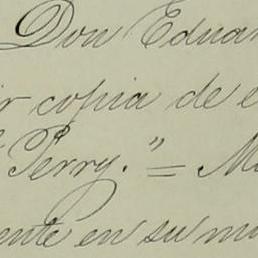 Don Eduar
ir copia de e
Perry." = Ma
ente en su mu